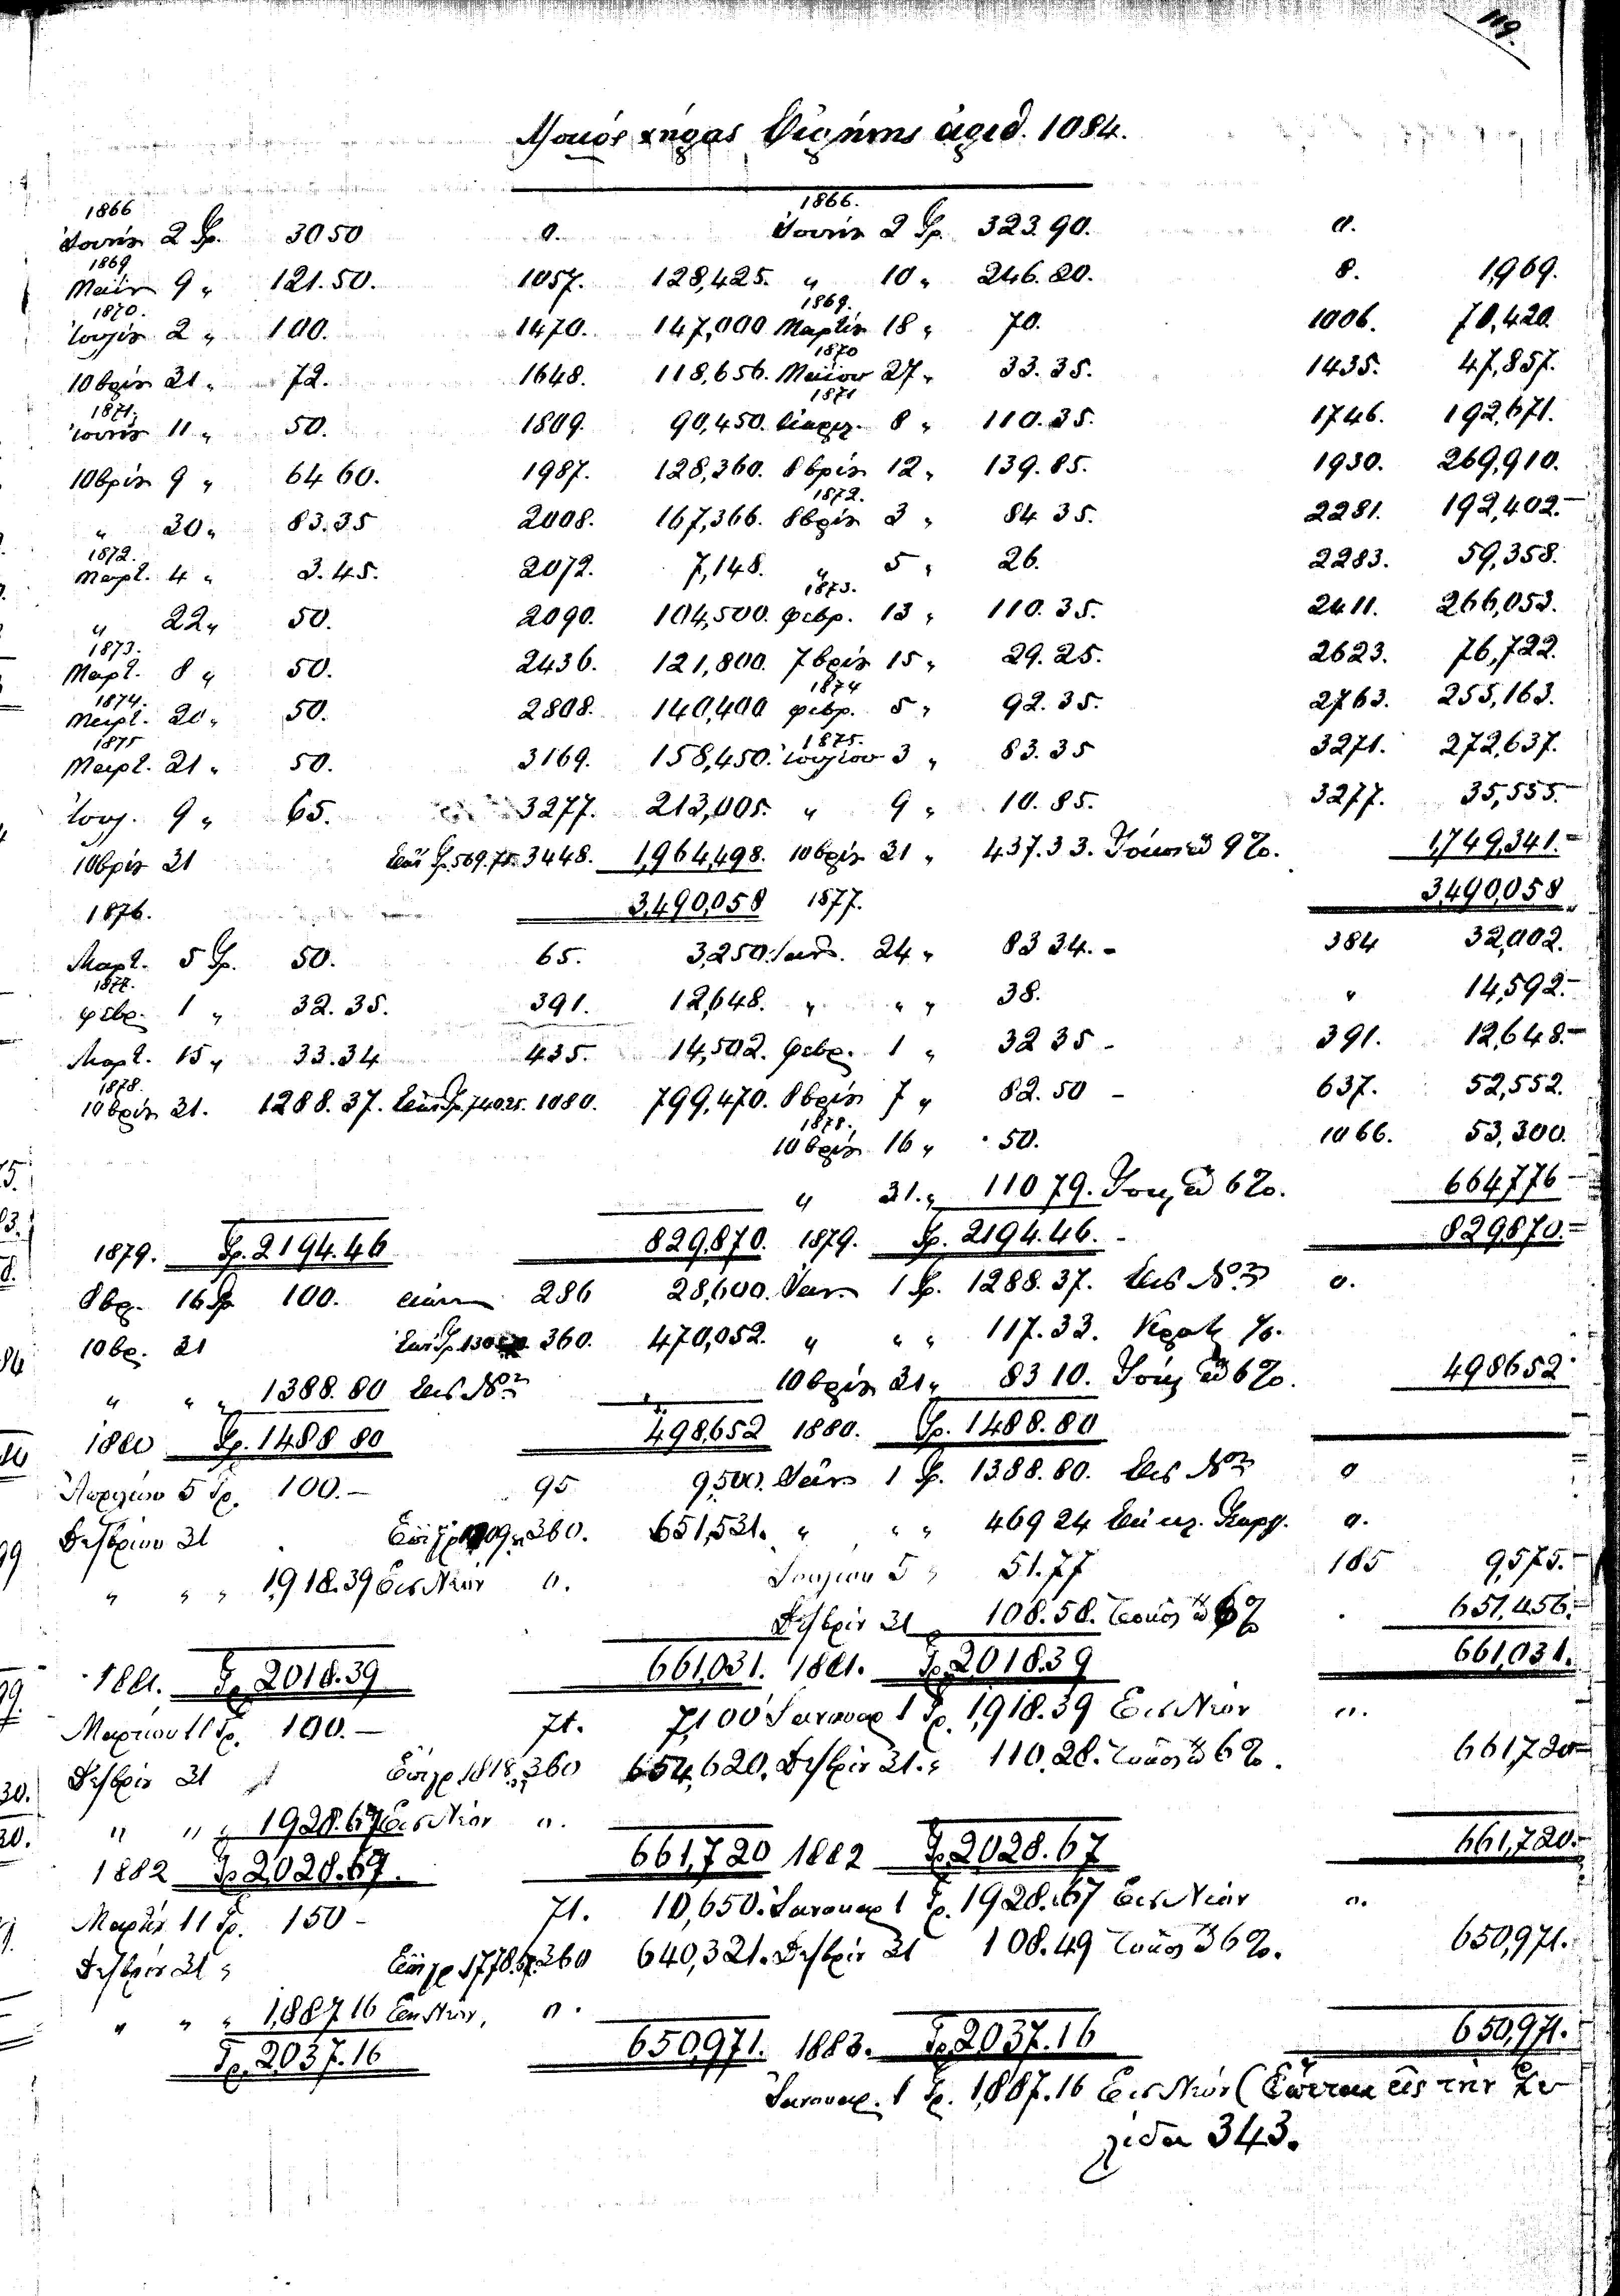 119.
χήρας Εἰρήνης ἀριθ. 1084.
1866 1866.
2 Γρ. 30 50 0. 2 Γρ. 323.90. 0.
1869
Μαΐου 9 " 121.50. 1057. 128,425. " 10 " 246.20. 8. 1,969.
1870. 1869.
Ἰουλίου 2 " 100. 1470. 147,000 Μαρτίου 18 " 70. 1006. 70,420.
1870
10βρίου 31 " 72. 1648. 118,656. Μαΐου 27 " 33.35. 1435. 47,857.
1871. 1871
11 " 50. 1809. 90,450. 8 " 110.35. 1746. 192,671.
10βρίου 9 " 64 60. 1987. 128,360. 8βρίου 12 " 139.85. 1930. 269,910.
1872.
" 30 " 83.35 2008. 167,366. 8βρίου 3 " 84 35. 2281. 192,402.
1872.
Μαρτ. 4 " 3.45. 2072. 7,148. " 5 " 26. 2283. 59,358.
1873.
" 22 " 50. 2090. 104,500. φεβρ. 13 " 110.35. 2411. 266,053.
1873.
Μαρτ. 8 " 50. 2436. 121,800. 7βρίου 15 " 29.25. 2623. 76,722.
1874. 1874
Μαρτ. 20 " 50. 2808. 140,400 φεβρ. 5 " 92.35. 2763. 255,163.
1875 1875.
Μαρτ. 21 " 50. 3169. 158,450. Ἰουλίου 3 " 83.35 3271. 272,637.
Ἰουλ. 9 " 65. 3277. 213,005. " 9 " 10.85. 3277. 35,555.
10βρίου 31 Ἐπὶ Γρ. 569.75. 3448. 1,964,498. 10βρίου 31 " 437.33. 9%. 1,749,341.
1876. 3,490,058 1877. 3,490,058
Μαρτ. 5 Γρ. 50. 65. 3,250. Ἰαν. 24 " 83 34. - 384 32,002.
1877.
φεβρ. 1 " 32.35. 391. 12,648. " " " 38. " 14,592.
Μαρτ. 15 " 33.34 435. 14,502. φεβρ. 1 " 32 35 - 391. 12,648.
1878.
10βρίου 31. 1288.37. Ἐπὶ Γρ. 740.25. 1080. 799,470. 8βρίου 7 " 82.50 - 637. 52,552.
1878.
10βρίου 16 " 50. 1066. 53,300.
" 31. " 110 79. 6%. 664,776
1879. Γρ. 2194.46 829,870. 1879. Γρ. 2194.46. - 829,870.
8βρ. 16 Γρ 100. 286 28,600. Ἰαν. 1 Γρ. 1288.37. 0.
10βρ. 31 360. 470,052. " " " 117.33.
" " " 1388.80 10βρίου 31 " 83 10. 6%. 498652
1880 Γρ. 1488 80 498,652 1880. Γρ. 1488.80
Ἀπριλίου 5 Γρ. 100.— 95 9,500. Ἰαν. 1 Γρ. 1388.80. 0
Δεκβρίου 31 360. 651,531. " " " 469 24 0.
" " " 1,918.39 Εἰς Νέον 0. Ἰουλίου 5 " 51.77 185 9,575.
Δεκβρίου 31 108.58. Τόκος 6% 651,456.
1881. Γρ. 2018.39 661,031. 1881. Γρ. 2018.39 661,031.
Μαρτίου 11 Γρ. 100.— 71. 7,100 Ἰανουαρ 1 Γρ. 1,918.39 Εἰς Νέον 0.
Δεκβρίου 31 Ἐπὶ γρ 1818.39 360 654,620. Δεκβρίου 31. " 110.28. Τόκος 6%. 661,720
" " " 1928.67 Εἰς Νέον 0.
1882 Γρ 2028.67. 661,720 1882 Γρ. 2028.67 661,720.
Μαρτίου 11 Γρ. 150 - 71. 10,650. Ἰανουαρ 1 Γρ. 1928.67 Εἰς Νέον 0.
Δεκβρίου 31 " Ἐπὶ γρ 1778.67. 360 640,321. Δεκβρίου 31 108.49 Τόκος 6%. 650,971.
" " " 1,887.16 Εἰς Νέον, 0.
Γρ. 2,037.16 650,971. 1883. Γρ. 2037.16 650,971.
Ἰανουαρ. 1 Γρ. 1,887.16 Εἰς Νέον (Ἕπεται εἰς τὴν Σε
λίδα 343.